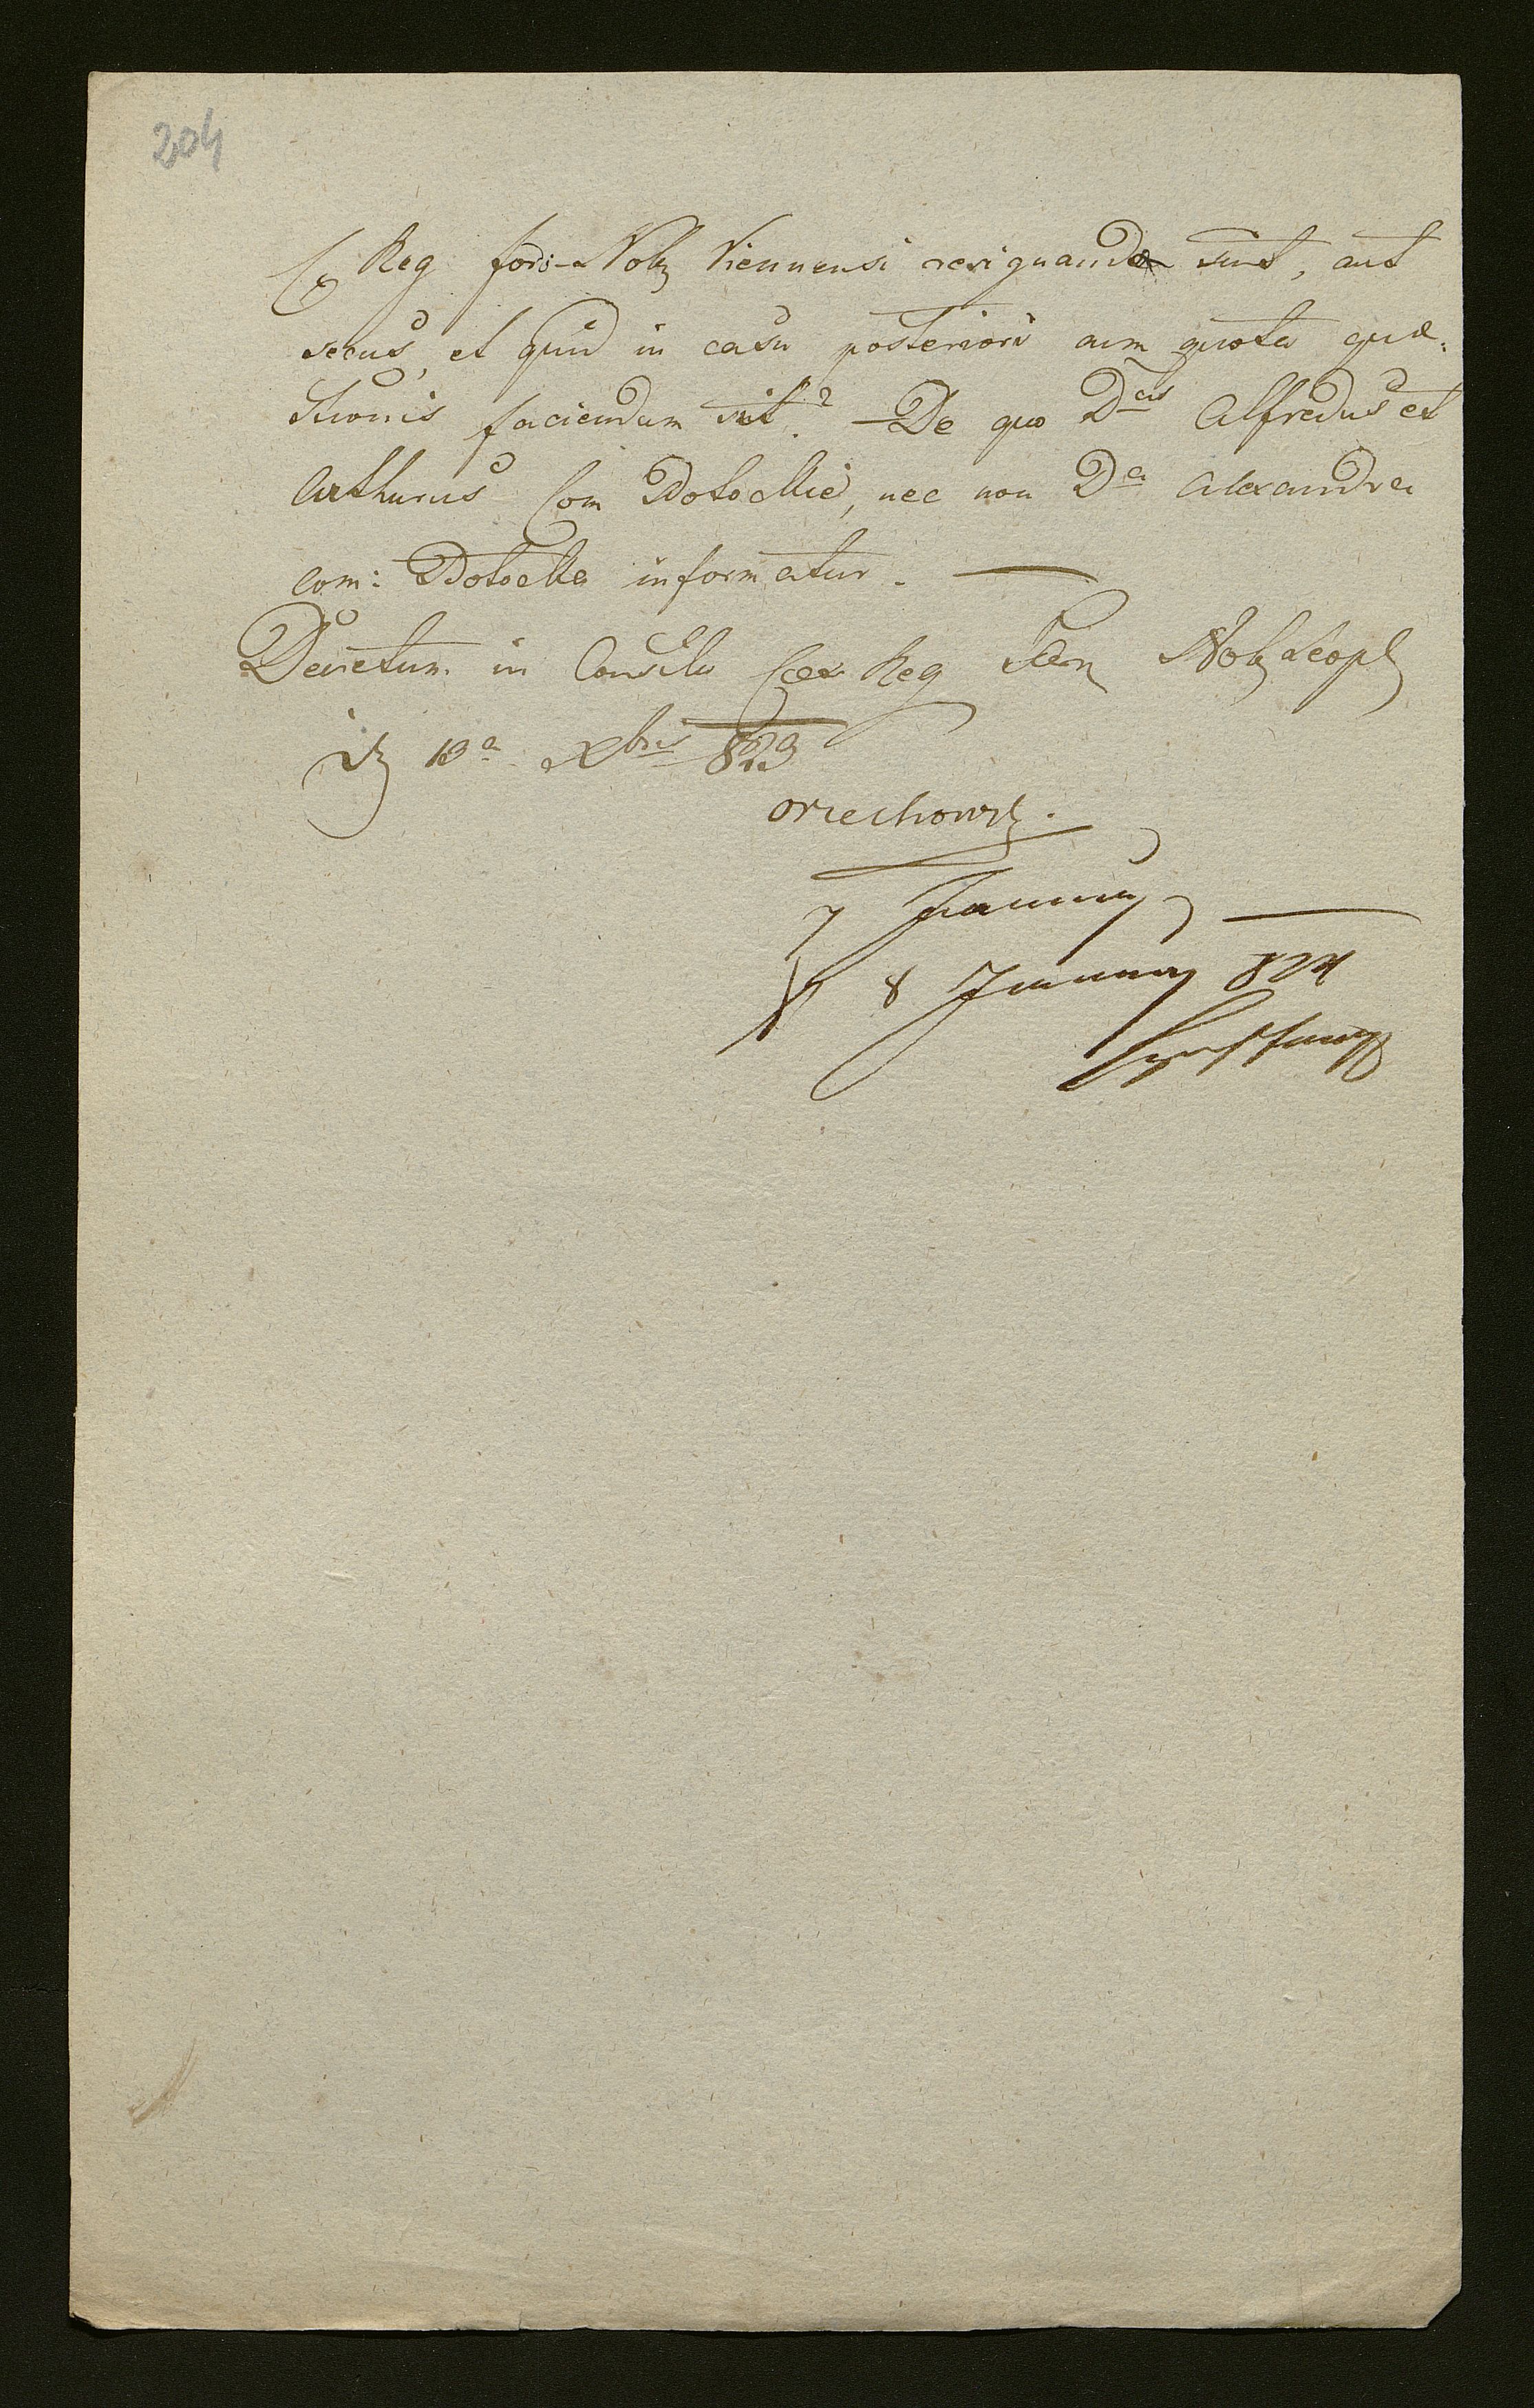 204
Reg foro Nob Viennensi resignanda sint, aut
secus, et quid in casu posteriori cum quota quæ-
stionis faciendum sit? — De quo Dnus Alfredus et
Arthurus Com Potockie, nec non Dna Alexandra
com: Potocka informatur. —
Decretum in Consilio Cæs Reg Fori Nob Leopl
13a Xbris 823
Orzechowsk.
7 January
8 January 824